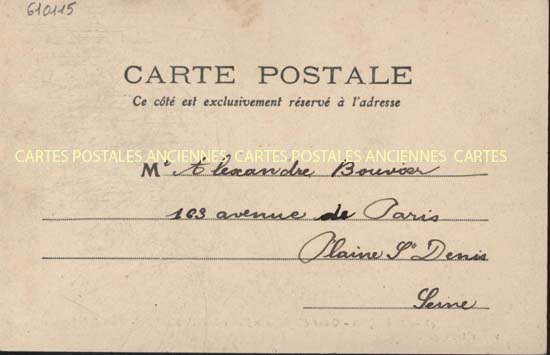 610115
CARTE POSTALE
Ce côté est exclusivement réservé à l'adresse
CARTES POSTALES ANCIENNES CARTES POSTALES ANCIENNES CARTES
Me Alexandre Bouvier
103 avenue de Paris
Plaine St Denis
Seine